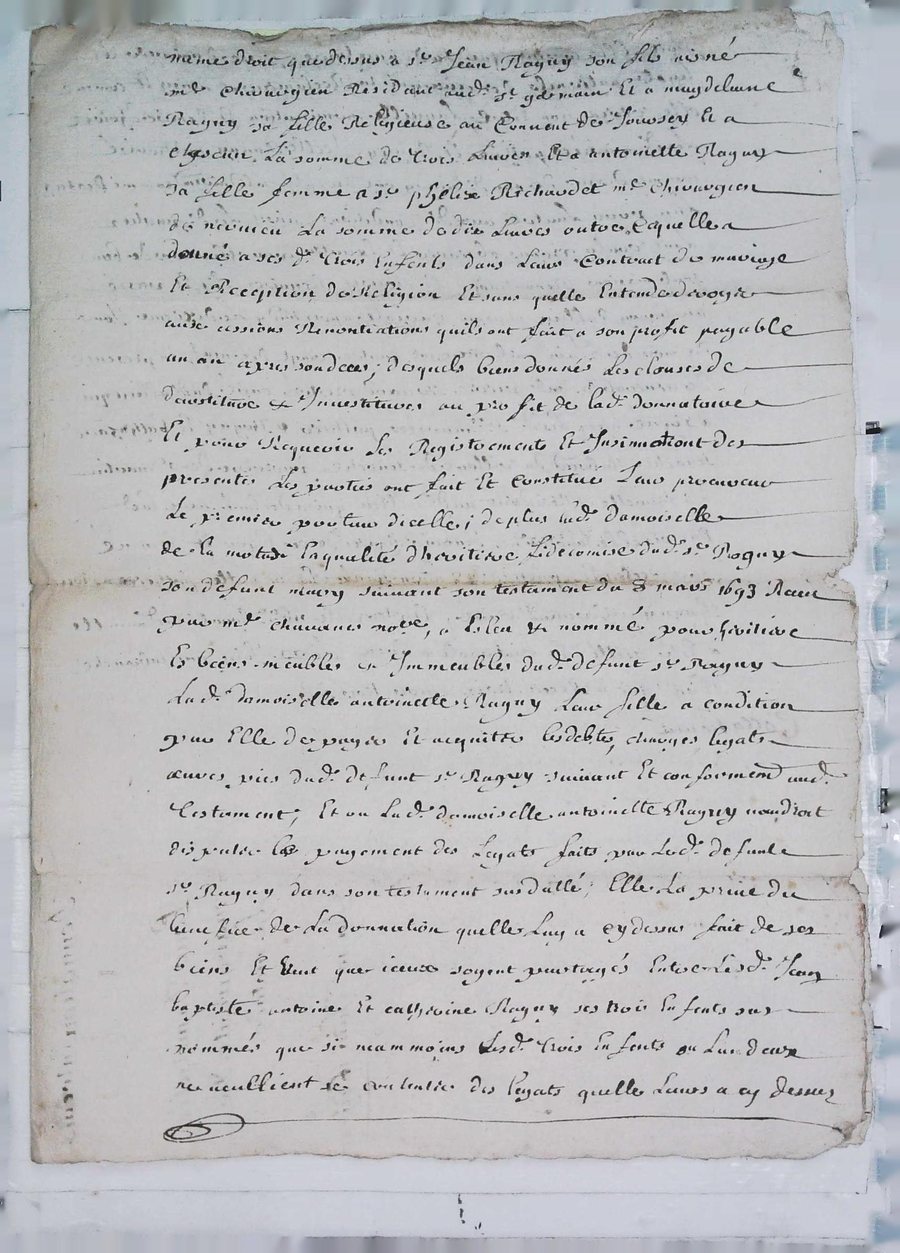 meme droit que dessus a sr Jean Raguy son fils aisné
me chirurgien Residant aud. st germain Et a magdeleine
Raguy sa fille Religieuse au Couvent de Joursey Et a
chascun La somme de trois Livres Et a antoinette Raguy
sa fille femme a sr phelise Richaudet me Chirurgien
de La somme de dix Livres outre Ce quelle a
donné a ses d. trois Enfents dans Leur Contract de mariage
Et Reception de Religion Et sans quelle Entende deroger
aux cessions Renontiations quils ont fait a son profit payable
un an apres son deces, desquels biens donnés Les clauses de
devestiture & Investitures au profit de lad. donnatoire
Et pour Requerir Les Registrements Et Insinuations des
presentes Les parties ont fait Et Constitué Leur procureur
Le premier porteur dicelle; de plus lad. damoiselle
de la motte laqualité dheritiere fidecomise dud. sr Raguy
son defunt mary suivant son testament du 8 mars 1693 Receu
par me chavanes nore, a Esleu & nommé pour heritiere
Es biens meubles & Immeubles dud. defunt sr Raguy
Lad. damoiselle antoinette Raguy Leur fille a condition
par Elle de payer Et acquitter les debtes, charges legats
œuvres pies dud. defunt sr Raguy suivant Et conformemt aud.
testament; Et ou Lad. damoiselle antoinette Raguy voudroit
disputer les payement des Legats faits par Led. defunt
sr Raguy dans son testament susdatté; Elle La prive du
benefice de La donnation quelle Luy a cy dessus fait de ses
biens Et veut que iceux soyent partagés Entre Lesd. Jean
baptiste antoine Et catherine Raguy ses trois Enfents sus
nommés que si neammoins Lesd. trois Enfents ou Lun deux
ne veullient se contenter des legats quelle Leurs a cy dessus